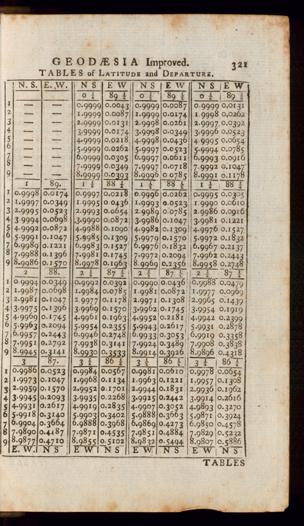 GEODÆSIA Improved. 321
TABLES of LATITUDE and DEPARTURE.
N. S. E. W. N S E W N S E W N S E W
0 ¼ 89 ¾ 0 ½ 89 ½ 0 ¾ 89 ¼
1 — — 0.9999 0.0043 0.9999 0.0087 0.9999 0.0131
2 — — 1.9999 0.0087 1.9999 0.0174 1.9998 0.0262
3 — — 2.9999 0.0131 2.9998 0.0261 2.9997 0.0392
4 — — 3.9999 0.0174 3.9998 0.0349 3.9996 0.0523
5 — — 4.9999 0.0218 4.9998 0.0436 4.9995 0.0654
6 — — 5.9999 0.0262 5.9997 0.0523 5.9994 0.0785
7 — — 6.9999 0.0305 6.9997 0.0611 6.9993 0.0916
8 — — 7.9999 0.0349 7.9997 0.0718 7.9992 0.1047
9 — — 8.9999 0.0393 8.9996 0.0785 8.9991 0.1178
1 89. 1 ¼ 88 ¾ 1 ½ 88 ½ 1 ¾ 88 ¼
1 0.9998 0.0174 0.9997 0.0218 0.9996 0.0262 0.9995 0.0305
2 1.9997 0.0349 1.9995 0.0436 1.9993 0.0523 1.9990 0.0610
3 2.9995 0.0523 2.9993 0.0654 2.9989 0.0785 2.9986 0.0916
4 3.9994 0.0698 3.9990 0.0872 3.9986 0.1047 3.9981 0.1221
5 4.9992 0.0872 4.9988 0.1090 4.9982 0.1309 4.9976 0.1527
6 5.9991 0.1047 5.9985 0.1309 5.9979 0.1570 5.9972 0.1832
7 6.9989 0.1221 6.9983 0.1527 6.9976 0.1832 6.9967 0.2137
8 7.9988 0.1396 7.9981 0.1745 7.9972 0.2094 7.9962 0.2443
9 8.9986 0.1570 8.9978 0.1963 8.9969 0.2356 8.9958 0.2748
2 88. 2 ¼ 87 ¾ 2 ½ 87 ½ 2 ¾ 87 ¼
1 0.9994 0.0349 0.9992 0.0392 0.9990 0.0436 0.9988 0.0479
2 1.9987 0.0698 1.9984 0.0785 1.9981 0.0872 1.9977 0.0961
3 2.9981 0.1047 2.9977 0.1178 2.9971 0.1308 2.9965 0.1439
4 3.9975 0.1396 3.9969 0.1570 3.9962 0.1745 3.9954 0.1919
5 4.9969 0.1745 4.9961 0.1963 4.9952 0.2181 4.9942 0.2399
6 5.9963 0.2094 5.9954 0.2355 5.9943 0.2617 5.9931 0.2878
7 6.9957 0.2443 6.9946 0.2748 6.9933 0.3053 6.9919 0.3358
8 7.9951 0.2792 7.9938 0.3141 7.9924 0.3489 7.9908 0.3838
9 8.9945 0.3141 8.9930 0.3533 8.9914 0.3926 8.9896 0.4318
3 87. 3 ¼ 86 ¾ 3 ½ 86 ½ 3 ¾ 86 ¼
1 0.9986 0.0523 0.9984 0.0567 0.9981 0.0610 0.9978 0.0654
2 1.9973 0.1047 1.9968 0.1134 1.9963 0.1221 1.9957 0.1308
3 2.9959 0.1570 2.9952 0.1701 2.9944 0.1831 2.9936 0.1962
4 3.9945 0.2093 3.9935 0.2268 3.9925 0.2442 3.9914 0.2616
5 4.9931 0.2617 4.9919 0.2835 4.9907 0.3052 4.9893 0.3270
6 5.9918 0.3140 5.9903 0.3402 5.9888 0.3663 5.9871 0.3924
7 6.9904 0.3664 6.9888 0.3968 6.9869 0.4273 6.9850 0.4578
8 7.9890 0.4187 7.9871 0.4535 7.9851 0.4884 7.9829 0.5232
9 8.9877 0.4710 8.9855 0.5102 8.9832 0.5494 8.9807 0.5886
E. W. N S E W N S E W N S E W N S
TABLES